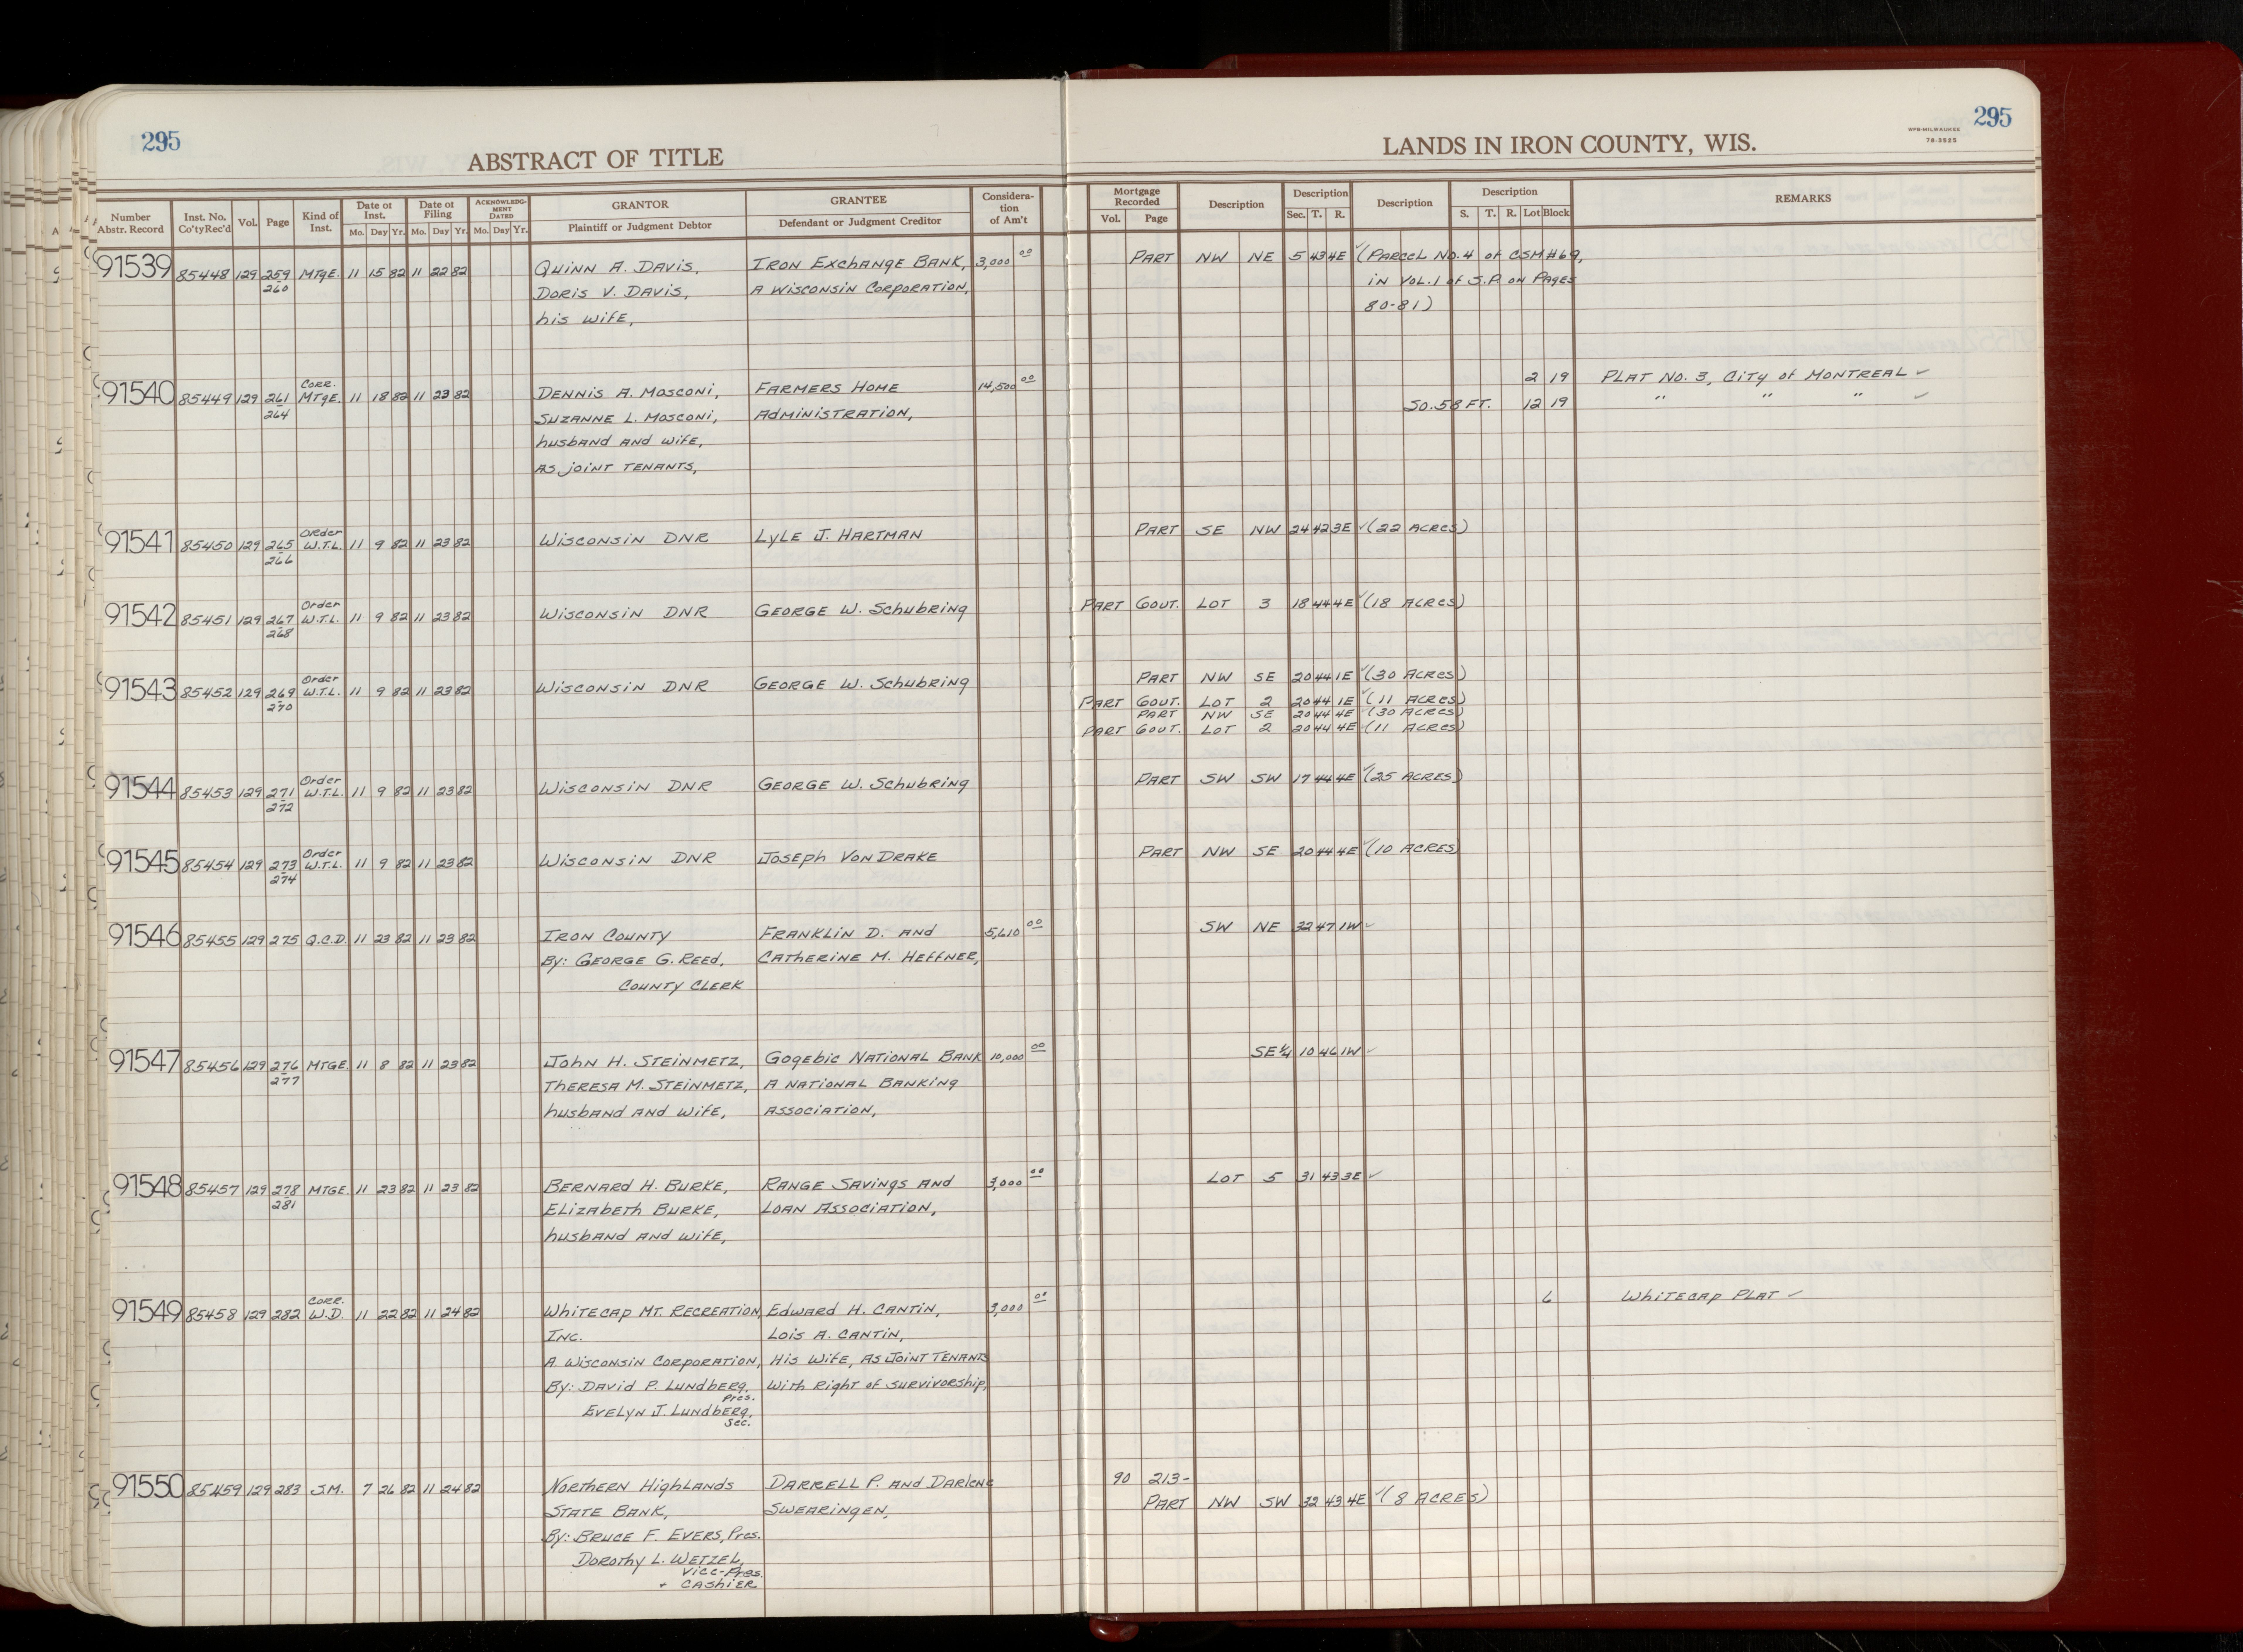 295
ABSTRACT OF TITLE
LANDS IN IRON COUNTY, WIS.
WPB-MILWAUKEE
78-3525
295
Number Abstr. Record | Inst. No. Co'ty Rec'd | Vol. | Page | Kind of Inst. | Date of Inst. Mo. Day Yr. | Date of Filing Mo. Day Yr. | ACKNOWLEDGMENT DATED Mo. Day Yr. | GRANTOR Plaintiff or Judgment Debtor | GRANTEE Defendant or Judgment Creditor | Consideration of Am't | Mortgage Recorded Vol. Page | Description | Description Sec. T. R. | Description | Description S. T. R. Lot Block | REMARKS
91539 85448 129 259 MTGE. 11 15 82 11 22 82 QUINN A. DAVIS, IRON EXCHANGE BANK, 3,000 00 PART NW NE 5 43 4E ✓(PARCEL NO. 4 of CSM#69,
260 DORIS V. DAVIS, A WISCONSIN CORPORATION, IN VOL. 1 of S.P. ON PAGES
his wife, 80-81)
CORR.
91540 85449 129 261 MTGE. 11 18 82 11 23 82 DENNIS A. MOSCONI, FARMERS HOME 14,500 00 2 19 PLAT NO. 3, CITY of MONTREAL ✓
264 SUZANNE L. MOSCONI, ADMINISTRATION, 50.58 FT. 12 19 " " " ✓
husband and wife,
AS JOINT TENANTS,
Order
91541 85450 129 265 W.T.L. 11 9 82 11 23 82 WISCONSIN DNR LYLE J. HARTMAN PART SE NW 24 42 3E ✓(22 ACRES)
266
Order
91542 85451 129 267 W.T.L. 11 9 82 11 23 82 WISCONSIN DNR GEORGE W. SCHUBRING PART GOVT. LOT 3 18 44 4E ✓(18 ACRES)
268
Order
91543 85452 129 269 W.T.L. 11 9 82 11 23 82 WISCONSIN DNR GEORGE W. SCHUBRING PART NW SE 20 44 1E ✓(30 ACRES)
270 PART GOVT. LOT 2 20 44 1E ✓(11 ACRES)
PART NW SE 20 44 4E ✓(30 ACRES)
PART GOVT. LOT 2 20 44 4E ✓(11 ACRES)
Order
91544 85453 129 271 W.T.L. 11 9 82 11 23 82 WISCONSIN DNR GEORGE W. SCHUBRING PART SW SW 17 44 4E ✓(25 ACRES)
272
Order
91545 85454 129 273 W.T.L. 11 9 82 11 23 82 WISCONSIN DNR JOSEPH VON DRAKE PART NW SE 20 44 4E ✓(10 ACRES)
274
91546 85455 129 275 Q.C.D. 11 23 82 11 23 82 IRON COUNTY FRANKLIN D. AND 5,610 00 SW NE 32 47 1W ✓
By: GEORGE G. REED, CATHERINE M. HEFFNER,
COUNTY CLERK
91547 85456 129 276 MTGE. 11 8 82 11 23 82 JOHN H. STEINMETZ, GOGEBIC NATIONAL BANK 10,000 00 SE¼ 10 46 1W ✓
277 THERESA M. STEINMETZ, A NATIONAL BANKING
husband and wife, ASSOCIATION,
91548 85457 129 278 MTGE. 11 23 82 11 23 82 BERNARD H. BURKE, RANGE SAVINGS AND 3,000 00 LOT 5 31 43 3E ✓
281 ELIZABETH BURKE, LOAN ASSOCIATION,
husband and wife,
CORR.
91549 85458 129 282 W.D. 11 22 82 11 24 82 WHITECAP MT. RECREATION, EDWARD H. CANTIN, 3,000 00 6 WHITECAP PLAT ✓
INC. LOIS A. CANTIN,
A WISCONSIN CORPORATION, HIS WIFE, AS JOINT TENANTS
By: DAVID P. LUNDBERG, WITH RIGHT of SURVIVORSHIP,
Pres.
EVELYN J. LUNDBERG,
Sec.
91550 85459 129 283 S.M. 7 26 82 11 24 82 NORTHERN HIGHLANDS DARRELL P. AND DARLENE 90 213-
STATE BANK, SWEARINGEN, PART NW SW 32 43 4E ✓(8 ACRES)
By: BRUCE F. EVERS, Pres.
DOROTHY L. WETZEL,
Vice-Pres.
+ CASHIER